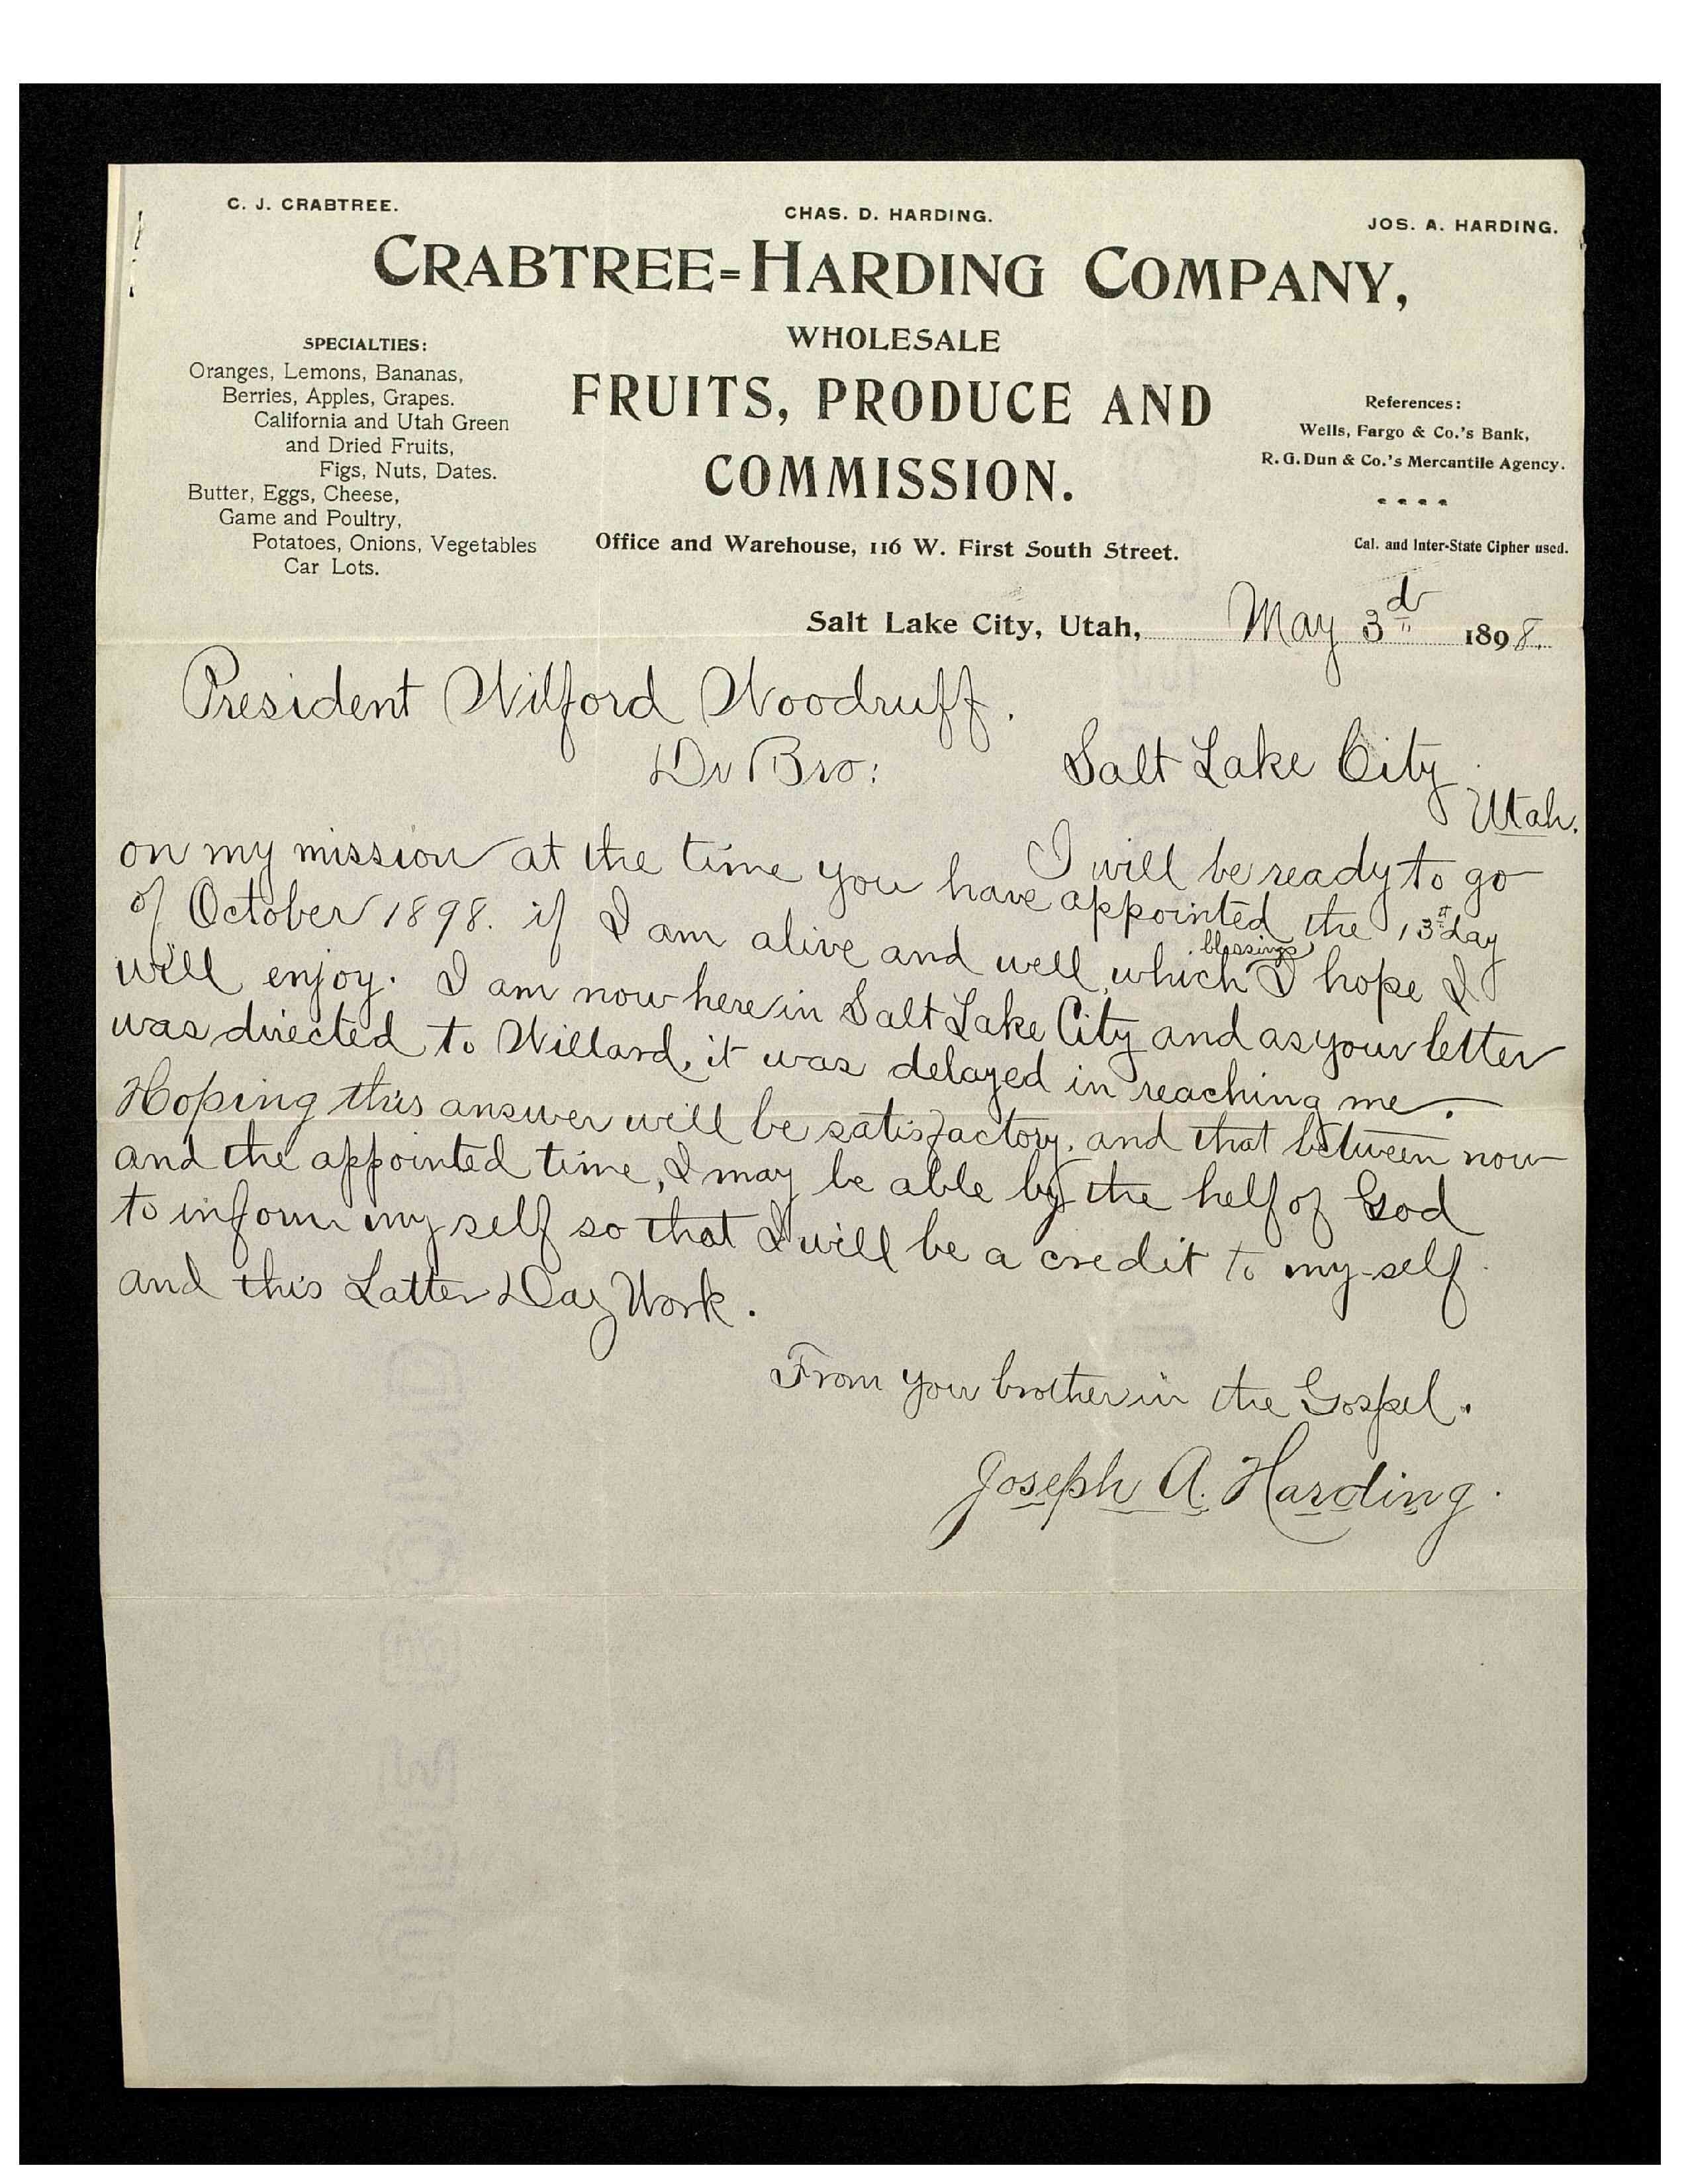 C. J. CRABTREE. CHAS. D. HARDING. JOS. A. HARDING.
CRABTREE=HARDING COMPANY,
WHOLESALE
FRUITS, PRODUCE AND
COMMISSION.
Office and Warehouse, 116 W. First South Street.
SPECIALTIES:
Oranges, Lemons, Bananas,
Berries, Apples, Grapes.
California and Utah Green
and Dried Fruits,
Figs, Nuts, Dates.
Butter, Eggs, Cheese,
Game and Poultry,
Potatoes, Onions, Vegetables
Car Lots.
References:
Wells, Fargo & Co.'s Bank,
R. G. Dun & Co.'s Mercantile Agency.
Cal. and Inter-State Cipher used.
Salt Lake City, Utah, May 3d 1898.
President Wilford Woodruff.
Salt Lake City
Utah.
Dr Bro:
I will be ready to go
on my mission at the time you have appointed the 13th day
of October 1898. if I am alive and well, which blessings I hope I
will enjoy. I am now here in Salt Lake City and as your letter
was directed to Willard, it was delayed in reaching me.
Hoping this answer will be satisfactory, and that between now
and the appointed time, I may be able by the helf of God
to inform my self so that I will be a credit to my-self
and this Latter Day Work.
From your brother in the Gospel.
Joseph A. Harding.